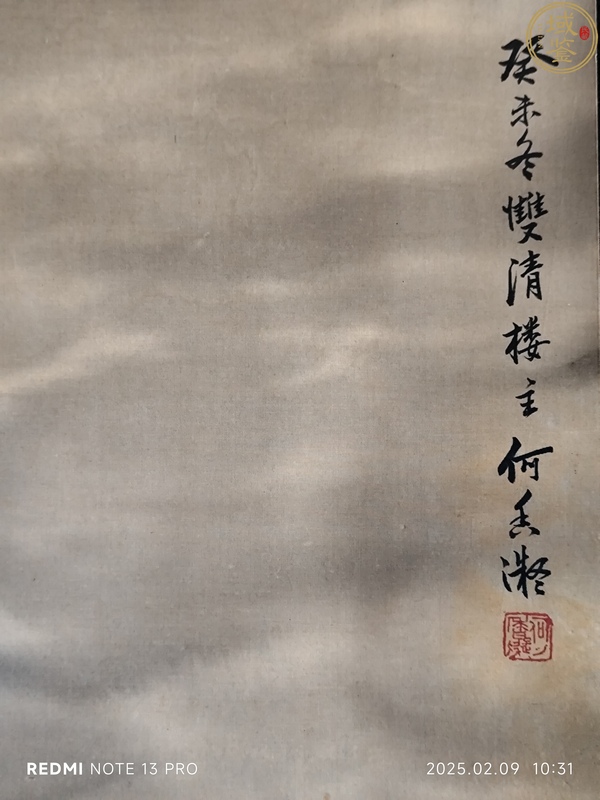 癸未冬雙清楼主何香凝
何香凝
藏鉴
REDMI NOTE 13 PRO
2025.02.09 10:31